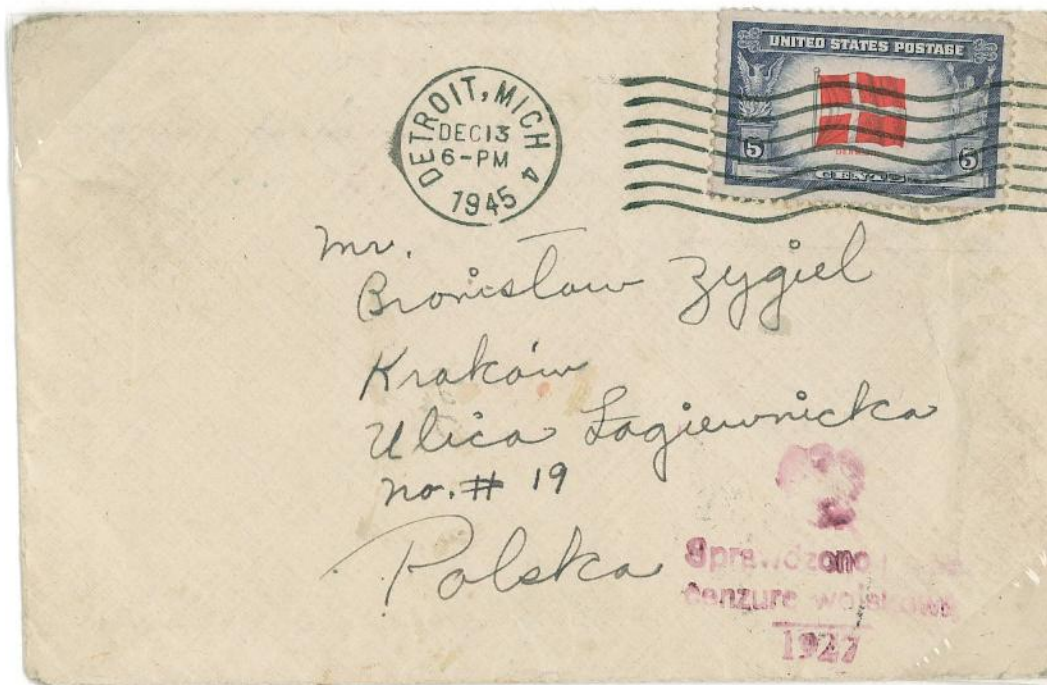 UNITED STATES POSTAGE
5 5
CENTS
DETROIT, MICH 4
DEC 13
6-PM
1945
Mr.
Bronisław Zygiel
Kraków
Ulica Łagiewnicka
No. # 19
Polska
Sprawdzono
cenzurę wojskową
1927